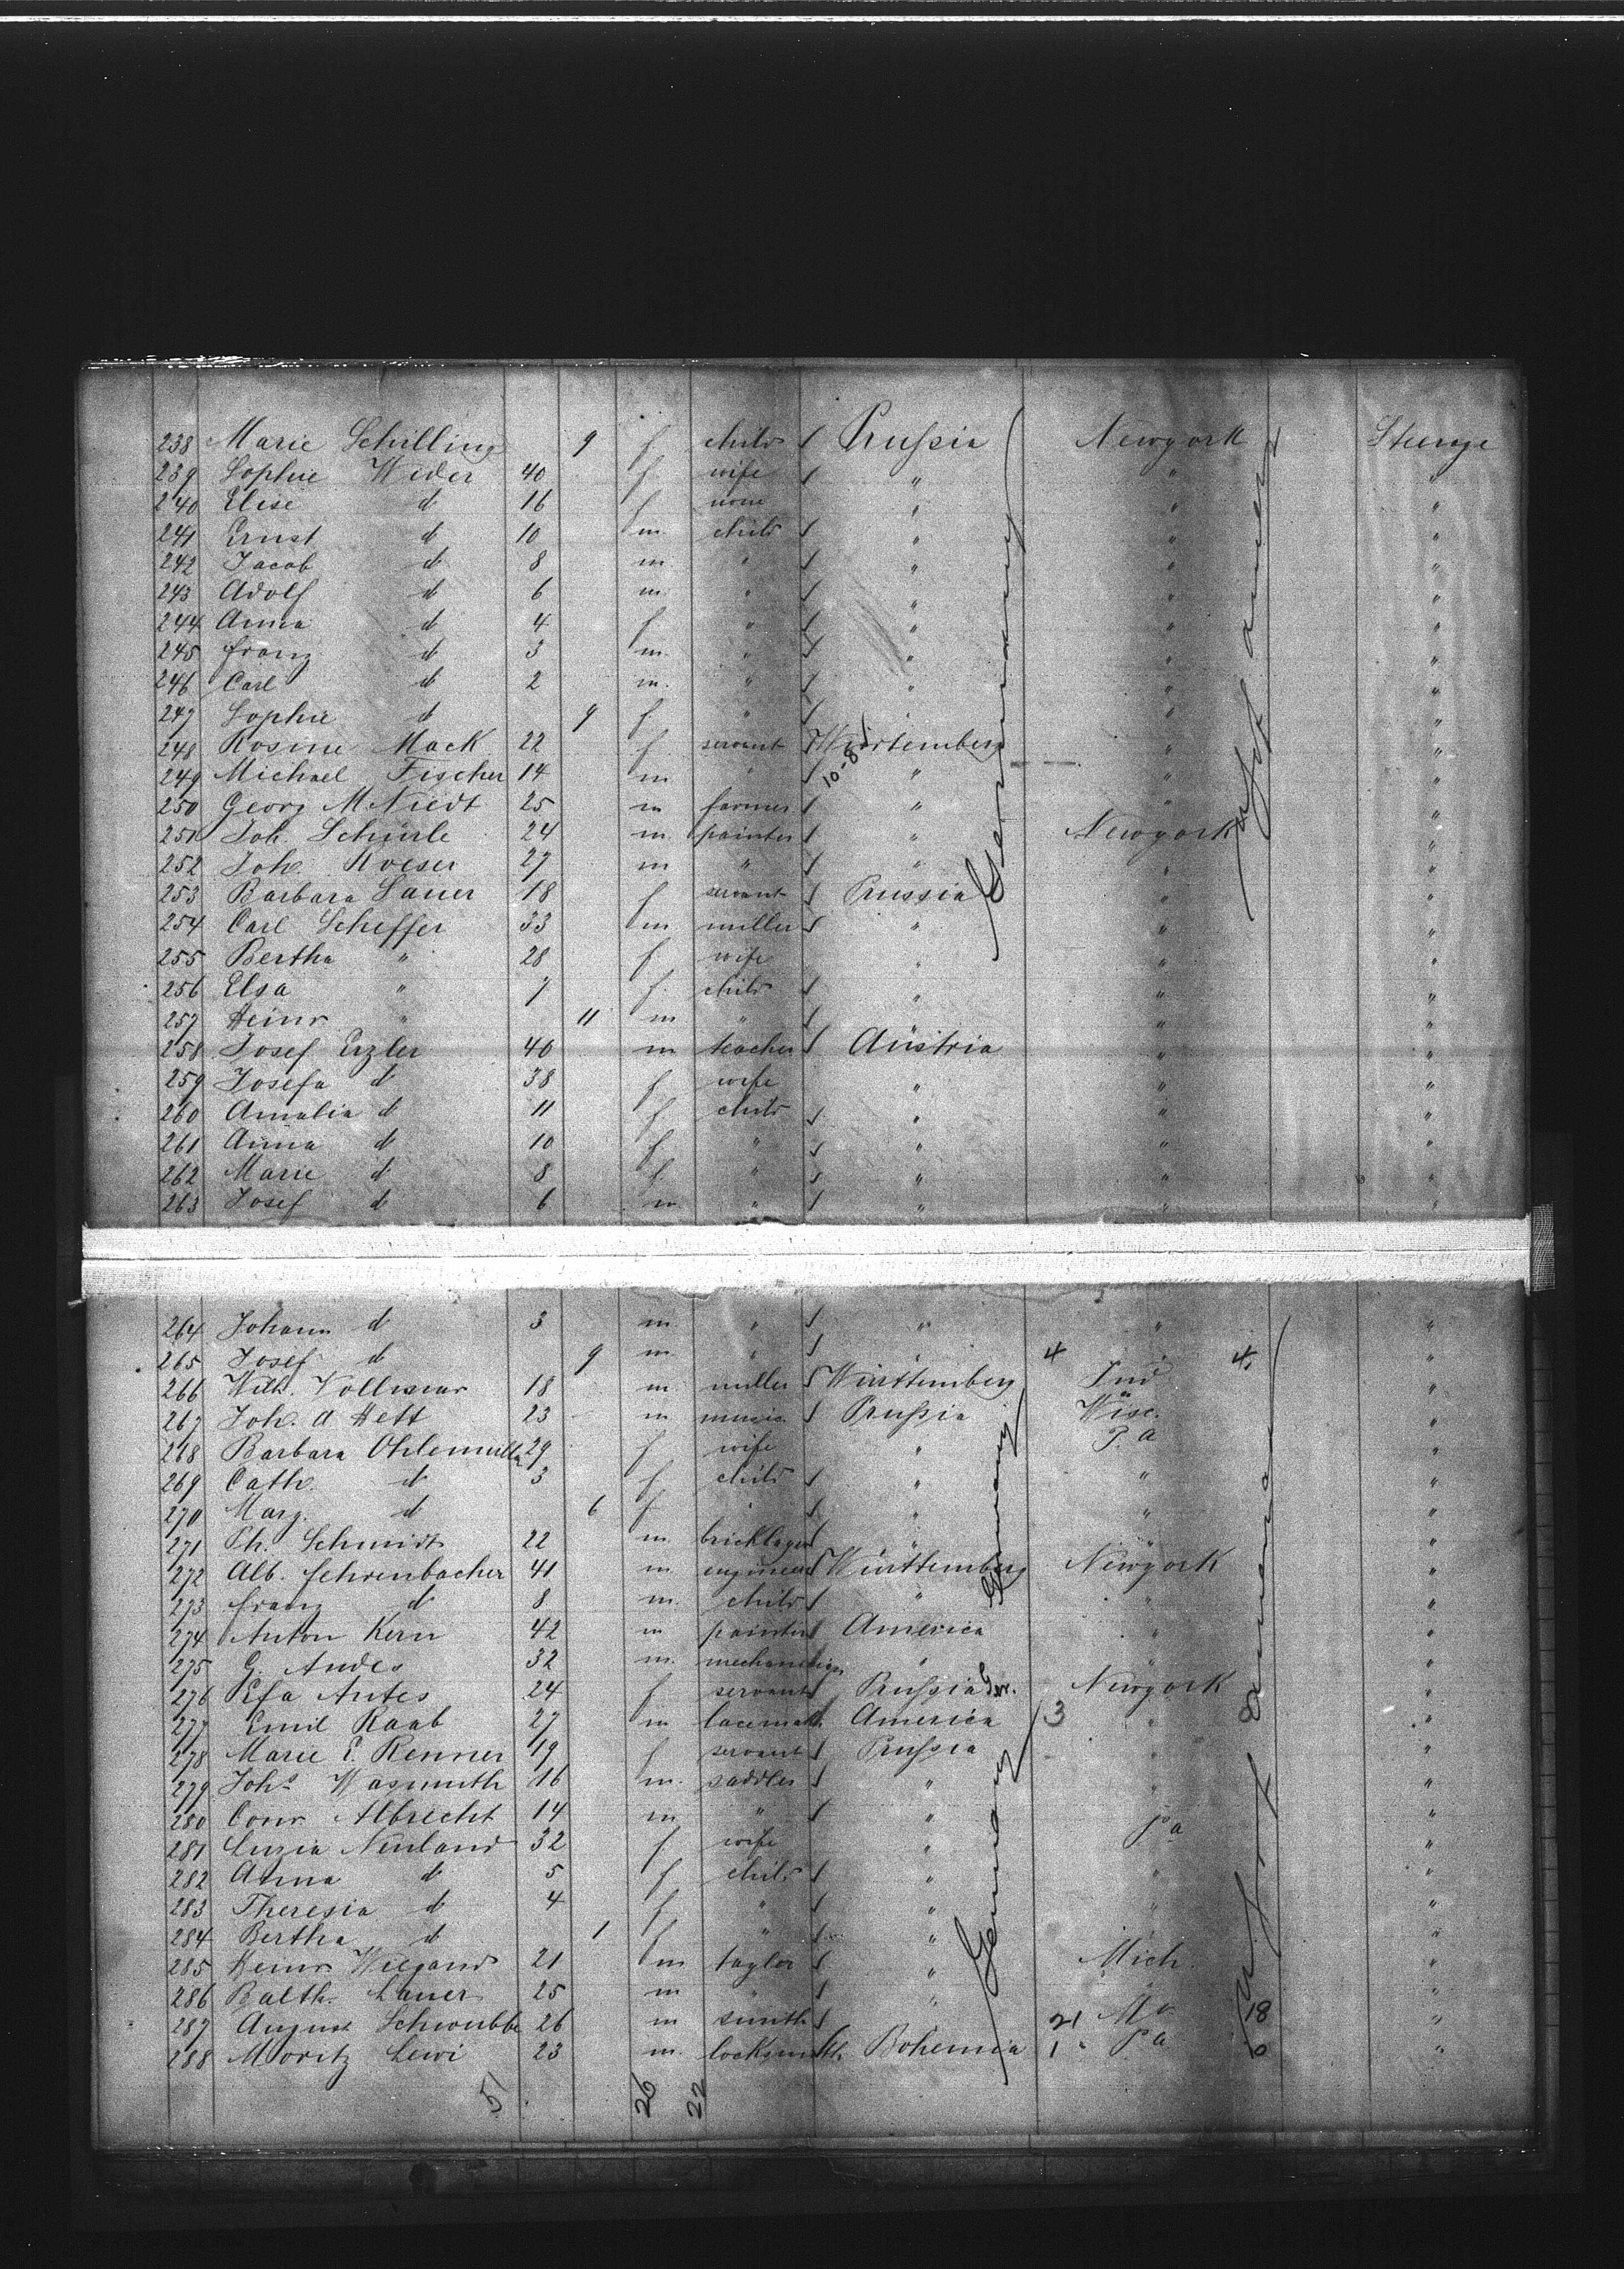 238 Marie Schilling 9 f child Prussia Newyork Steerage
239 Sophie Wider 40 f wife " " "
240 Elise d 16 f none " " "
241 Ernst d 10 m child " " "
242 Jacob d 8 m " " " "
243 Adolf d 6 m " " " "
244 Anna d 4 f " " " "
245 Franz d 3 m " " " "
246 Carl d 2 m " " " "
247 Sophie d 9 f " " "
248 Rosine Mack 22 f servant Würtemberg " "
249 Michael Fischer 14 m " " " "
250 Georg M. Niedt 25 m farmer " " "
251 Joh. Schürle 24 m painter " Newyork "
252 Joh. Roeser 27 m " " " "
253 Barbara Sauer 18 f servant Prussia " "
254 Carl Scheffer 33 m miller " " "
255 Bertha " 28 f wife " " "
256 Elsa " 7 f child " " "
257 Heinr " 11 m " " "
258 Josef Erzler 40 m teacher Austria " "
259 Josefa d 38 f wife " " "
260 Amalia d 11 f child " " "
261 Anna d 10 f " " " "
262 Marie d 8 f " " " "
263 Josef d 6 m " " " "
264 Johann d 3 m " " " "
265 Josef d 9 m " " 4 4 "
266 Wilh. Vollmar 18 m miller Württemberg Ind "
267 Joh. A Hett 23 m music. Prussia Wisc. "
268 Barbara Ohlemuller 29 f wife " P.a "
269 Cath. d 3 f child " " "
270 Marg. d 6 f " " " "
271 Ph. Schmidt 22 m bricklayer " "
272 Alb. Fehrenbacher 41 m engineer Württemberg Newyork "
273 Franz d 8 m child " " "
274 Anton Kern 42 m painter America " "
275 G. Andes 32 m mechanician " " "
276 Efa Antes 24 f servant Prussia Ger. Newyork "
277 Emil Raab 27 m lacemak. America 3 " "
278 Marie E. Renner 19 f servant Prussia " "
279 Johs Wasmuth 16 m saddler " " "
280 Conr Albrecht 14 m " " "
281 Luzia Neuland 32 f wife " Pa "
282 Anna d 5 f child " " "
283 Theresia d 4 f " " " "
284 Bertha d 1 f " " "
285 Heinr Wiegand 21 m taylor " Mich. "
286 Balth. Lauer 25 m " " " "
287 August Schwubbe 26 m smith 21 18 "
288 Moritz Lewi 23 m locksmith Bohemia 1 Pa "
51 26 22
10-8
Germany
Germany
Germany